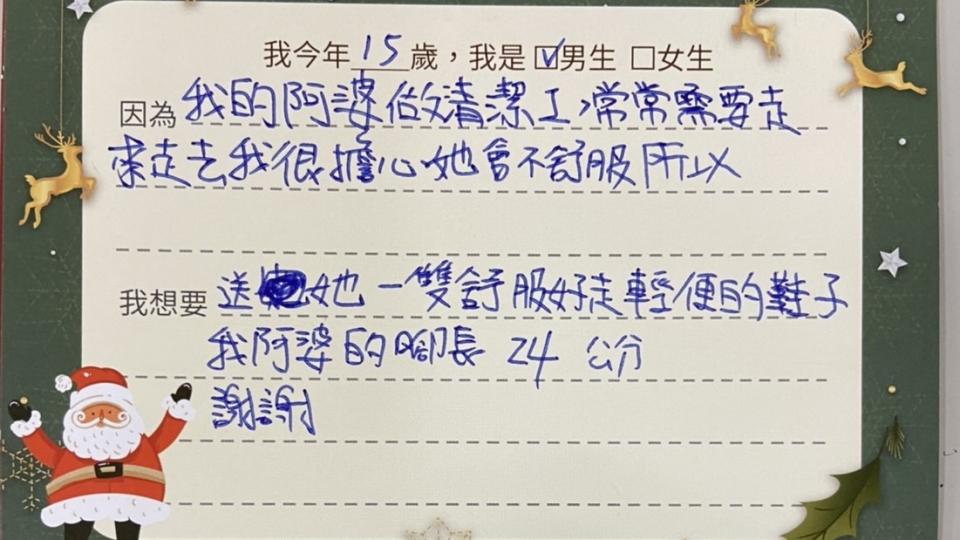 我今年15歲，我是☑男生 □女生
因為 我的阿婆做清潔工常常需要走
來走去我很擔心她會不舒服所以
我想要 送她一雙舒服好走輕便的鞋子
我阿婆的腳長 24 公分
謝謝